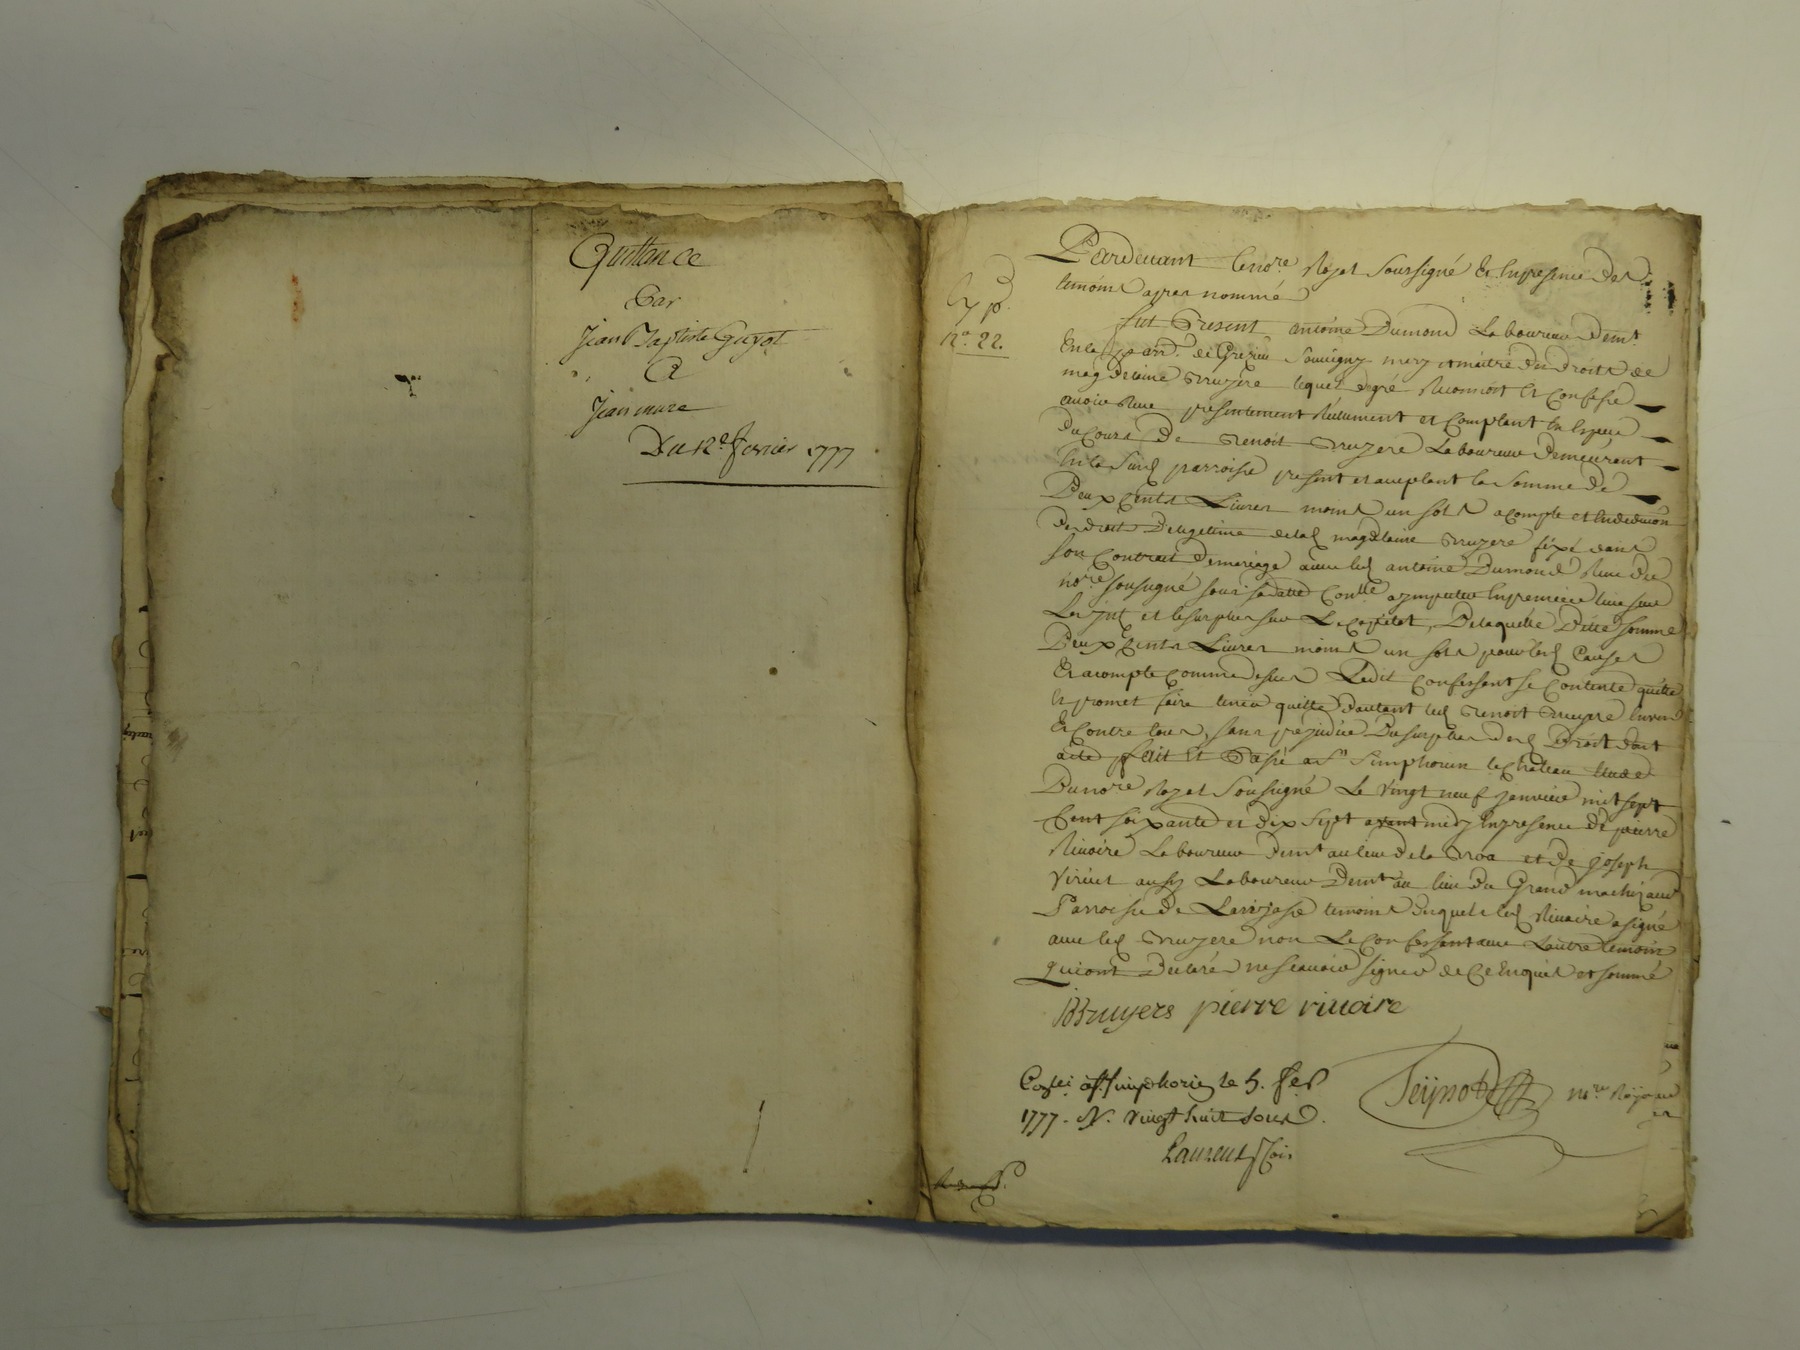 Quittance
Par
Jean Baptiste Guyot
A
Jean mure
Du 12e. fevrier 1777
Exp.
No. 22.
Pardevant le nore. Royal Soussigné Et En presence des
temoins apres nommé
fut Present antoine Dumond Laboureur demt.
En la parr. de Grezieu Souvigny mary et maitre des Droits de
magdelaine Bruyere lequel degré Reconnoit Et Confesse
avoir Reçue presentement Réellement et Comptant En Espece
du Cours De Benoit Bruyere Laboureur Demeurant
En la Susd parroisse present et aceptant la Somme de
Deux Cents Livres moins un sols acompte et En deduction
des droits De legitime de lad magdelaine Bruyere fixé dans
Son Contrat de mariage avec led antoine Dumond Reçu du
nore. soussigné sous sa datte Contlé a imputer En premiere lieu sur
Les jnt et le surplus sur Le Capital, De laquelle Ditte Somme
Deux Cents Livres moins un sols pour lesd Causes
Et acompte Comme dessus Ledit Confessant Se Contente quitte
Et promet faire tenir quitte d'autant led Benoit Bruyere Envers
Et Contre tous, Sans préjudice Du surplus desd Droits dont
acte fait Et Passé a St Simphorien le Chateau Etude
Du nore Royal Soussigné Le Vingt neuf janvier mil sept
Cent soixante et dix Sept avant midy En presence de pierre
Rivoire Laboureur demt au lieu de la Broa et de joseph
Viriut aussy Laboureur Demt au lieu du Grand
Parroisse de Larajasse temoins desquels led Rivoire a signé
avec led Bruyere non Le Confessant avec Lautre temoin
qui ont Declaré ne Scavoir Signer de Ce Enquis et sommé
BBruyers pierre rivoire
Conlé. a St. Simphorien le 5. fer
1777. R. vingt huit Sous.
Laurent
nre Royal